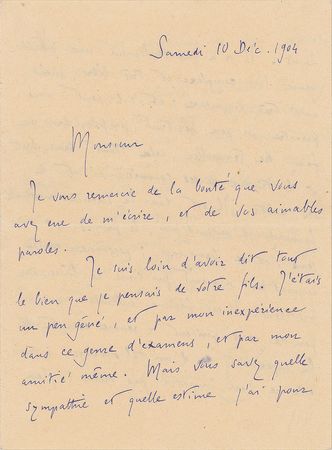 Samedi 10 Déc. 1904
Monsieur
Je vous remercie de la bonté que vous
avez eue de m'écrire, et de vos aimables
paroles.
Je suis loin d'avoir dit tout
le bien que je pensais de votre fils. J'étais
un peu gêné, et par mon inexpérience
dans ce genre d'examens, et par mon
amitié même. Mais vous savez quelle
sympathie et quelle estime j'ai pour